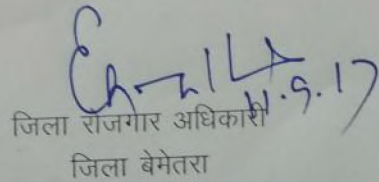 11.9.17
जिला रोजगार अधिकारी
जिला बेमेतरा